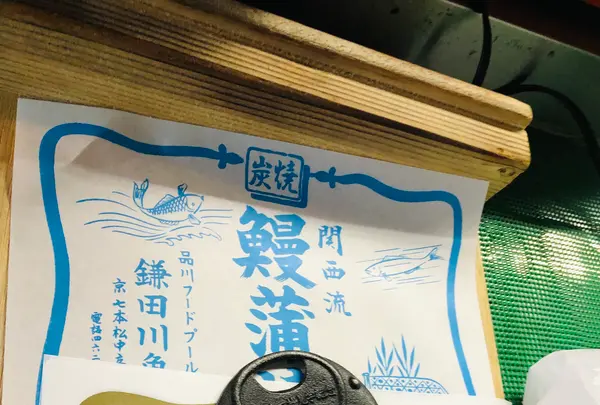 炭焼
関西流
鰻蒲
品川フードプール
鎌田川魚
京 七本松中立
電話四六二